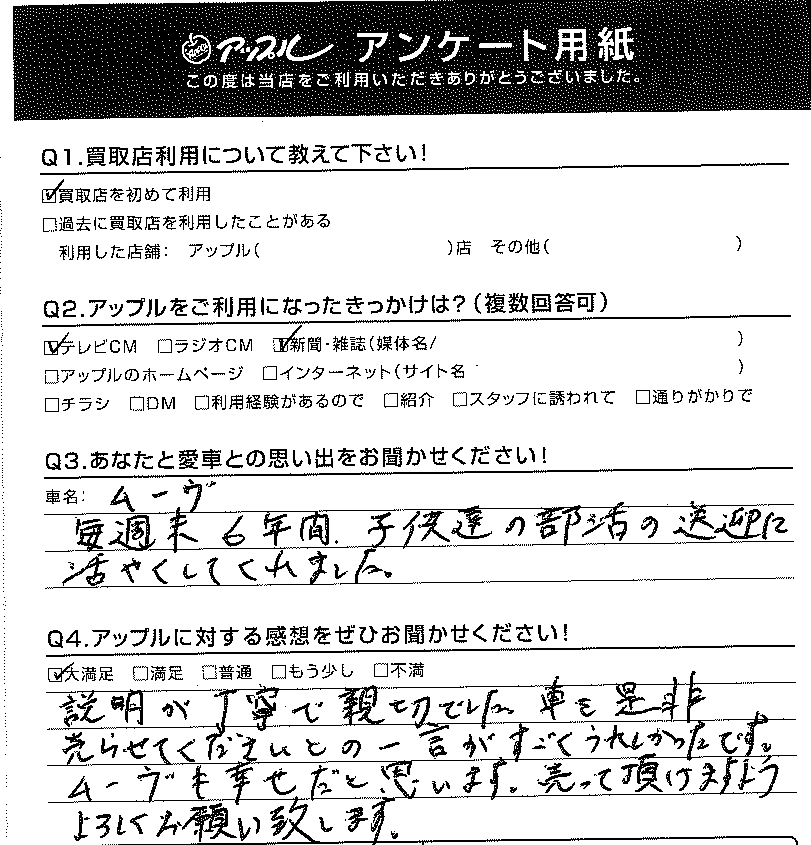 アップル アンケート用紙
この度は当店をご利用いただきありがとうございました。
Q1.買取店利用について教えて下さい!
☑買取店を初めて利用
□過去に買取店を利用したことがある
利用した店舗: アップル( )店 その他( )
Q2.アップルをご利用になったきっかけは?(複数回答可)
☑テレビCM □ラジオCM ☑新聞・雑誌(媒体名/ )
□アップルのホームページ □インターネット(サイト名 )
□チラシ □DM □利用経験があるので □紹介 □スタッフに誘われて □通りがかりで
Q3.あなたと愛車との思い出をお聞かせください!
車名: ムーヴ
毎週末 6年間、子供達の部活の送迎に
活やくしてくれました。
Q4.アップルに対する感想をぜひお聞かせください!
☑大満足 □満足 □普通 □もう少し □不満
説明が丁寧で親切でした。車を是非
売らせてくださいとの一言がすごくうれしかったです。
ムーヴも幸せだと思います。売って頂けますよう
よろしくお願い致します。